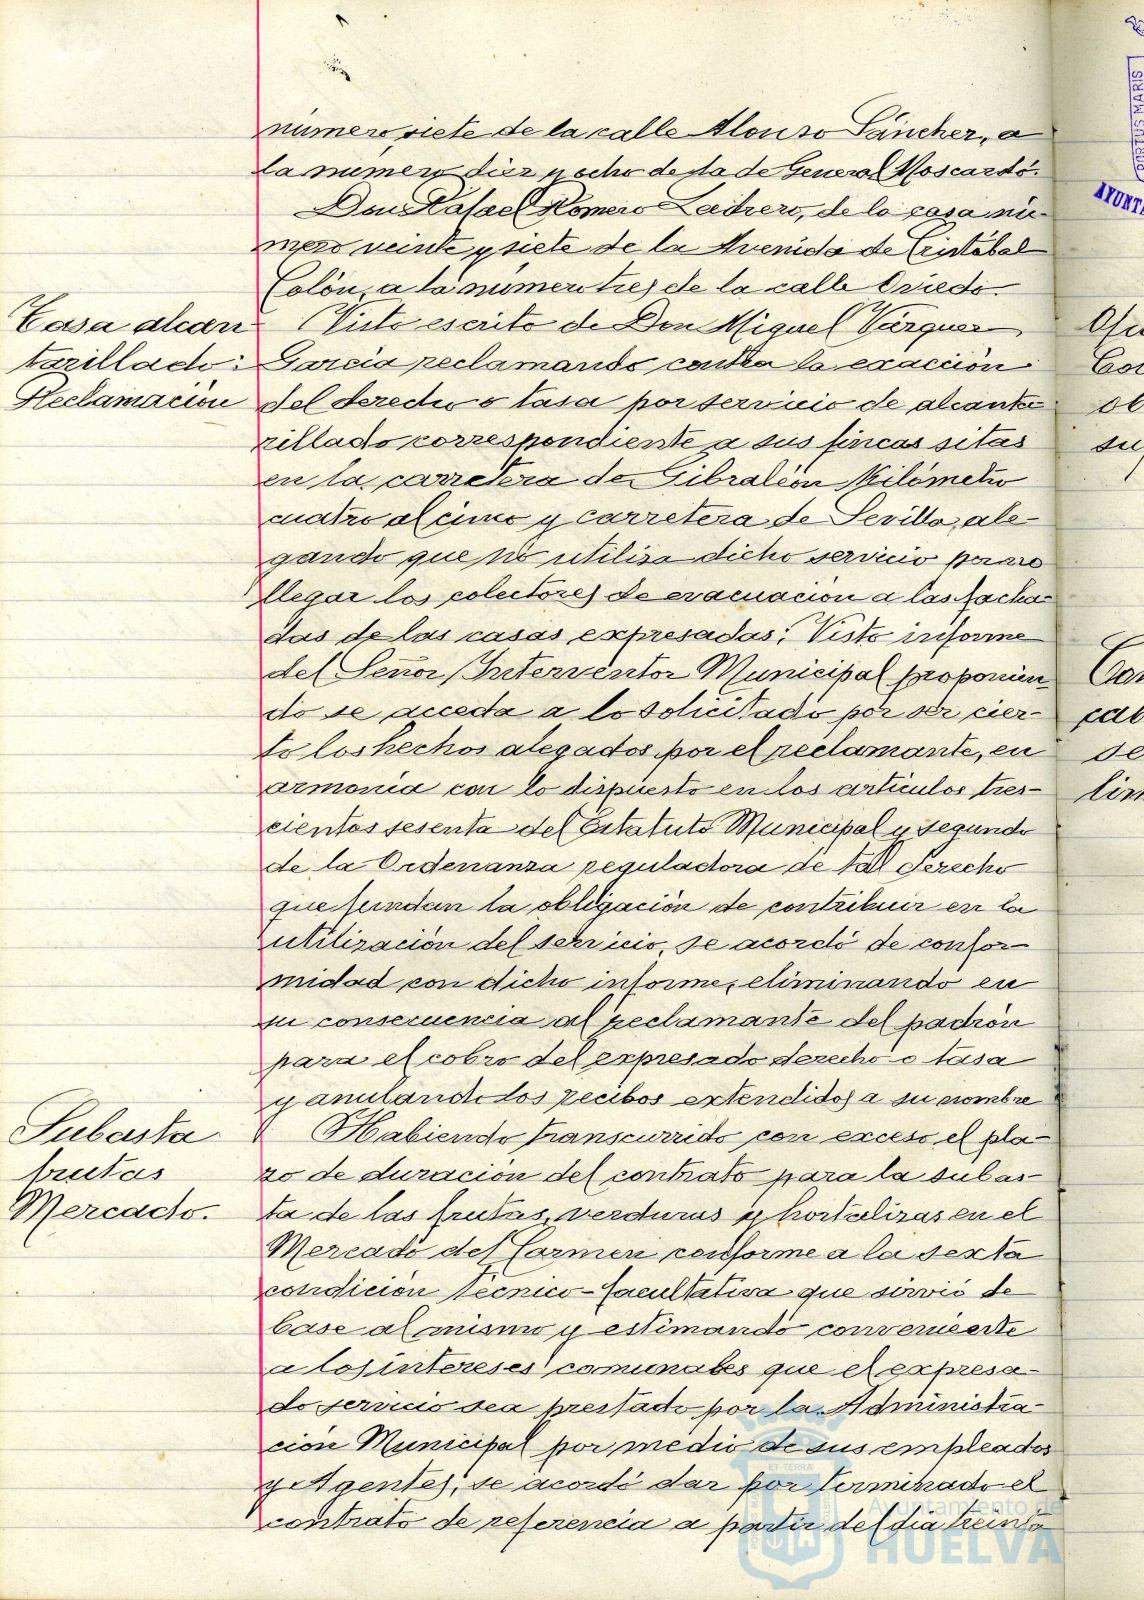 número siete de la calle Alonso Sánchez, a
la número diez y ocho de la de General Moscardó.
Don Rafael Romero Ladrero, de la casa nú-
mero veinte y siete de la Avenida de Cristóbal
Colón, a la número tres de la calle Oviedo.
Tasa alcan
tarillado:
Reclamación
Visto escrito de Don Miguel Vázquez
García reclamando contra la exacción
del derecho o tasa por servicio de alcanta-
rillado correspondiente a sus fincas sitas
en la carretera de Gibraleón Kilómetro
cuatro al cinco y carretera de Sevilla, ale-
gando que no utiliza dicho servicio por no
llegar los colectores de evacuación a las facha-
das de las casas expresadas; Visto informe
del Señor Interventor Municipal proponien-
do se acceda a lo solicitado por ser cier-
to los hechos alegados por el reclamante, en
armonía con lo dispuesto en los artículos tres-
cientos sesenta del Estatuto Municipal y segundo
de la Ordenanza reguladora de tal derecho
que fundan la obligación de contribuir en la
utilización del servicio, se acordó de confor-
midad con dicho informe, eliminando en
su consecuencia al reclamante del padrón
para el cobro del expresado derecho o tasa
y anulando los recibos extendidos a su nombre
Subasta
frutas
Mercado.
Habiendo transcurrido con exceso el pla-
zo de duración del contrato para la subas-
ta de las frutas, verduras y hortalizas en el
Mercado del Carmen conforme a la sexta
condición técnico-facultativa que sirvió de
base al mismo y estimando conveniente
a los intereses comunales que el expresa-
do servicio sea prestado por la Administra-
ción Municipal por medio de sus empleados
y Agentes, se acordó dar por terminado el
contrato de referencia a partir del día treinta
Ayuntamiento de
HUELVA
PORTUS MARIS
AYUNTA